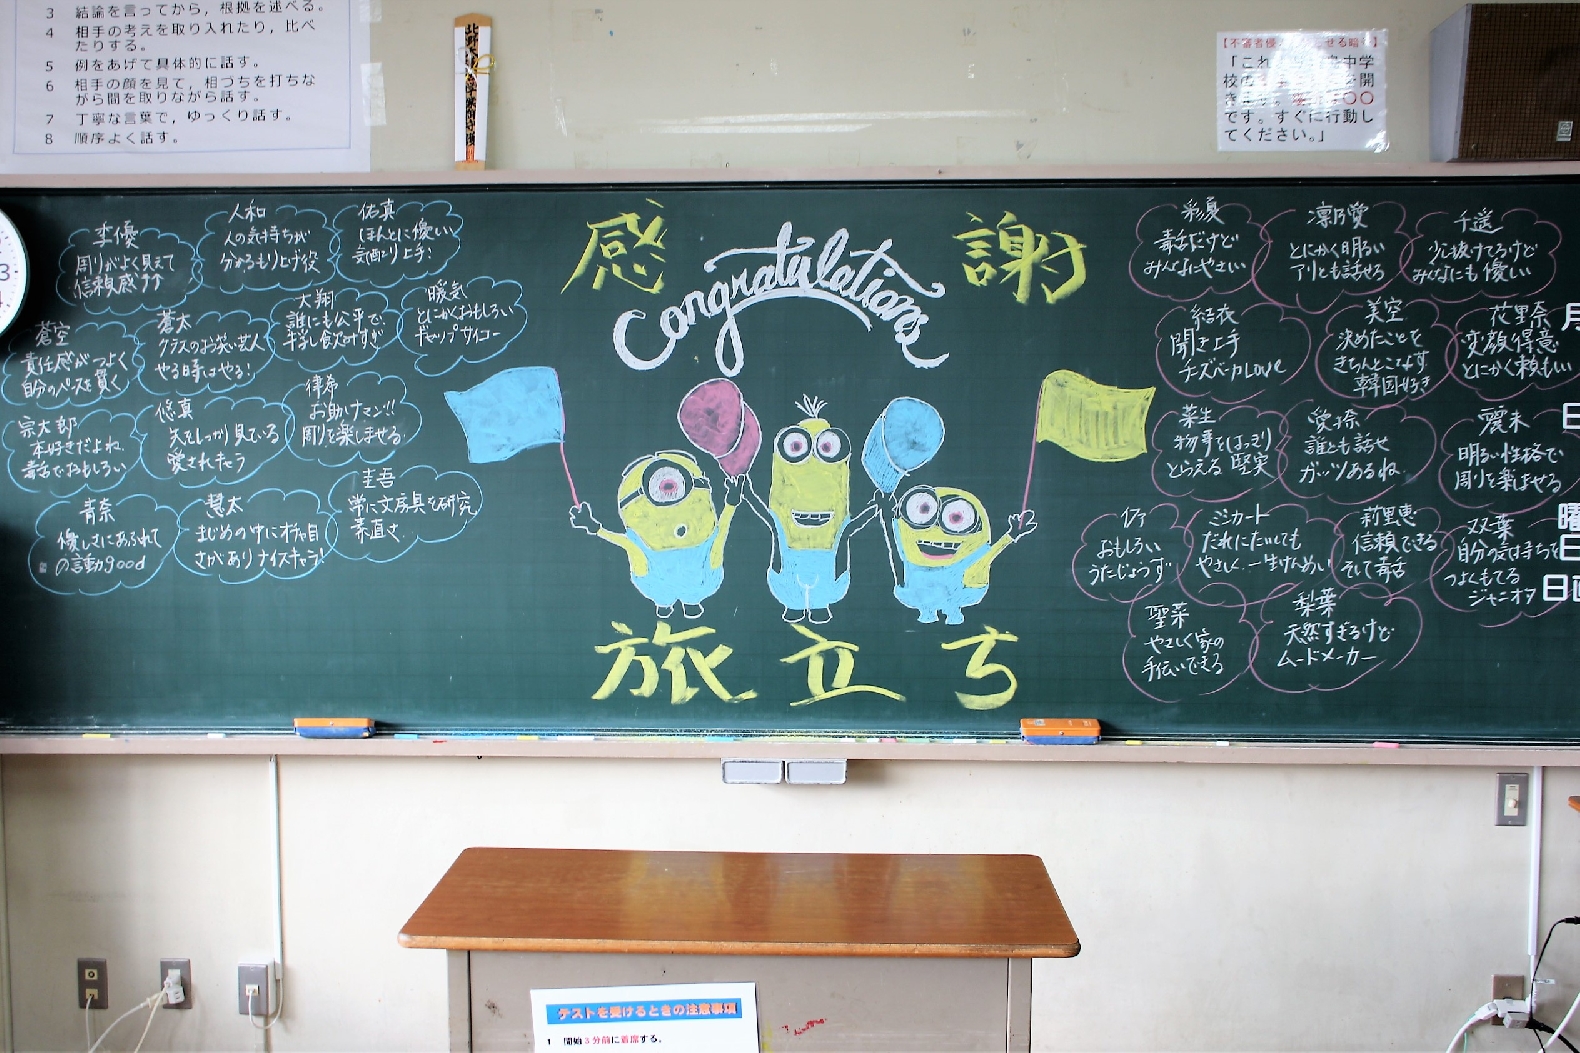 3 結論を言ってから，根拠を述べる。
4 相手の考えを取り入れたり，比べ
たりする。
5 例をあげて具体的に話す。
6 相手の顔を見て，相づちを打ちな
がら間を取りながら話す。
7 丁寧な言葉で，ゆっくり話す。
8 順序よく話す。
校
です。すぐに行動し
てください。」
感謝
Congratulations
旅立ち
李優
周りがよく見えて
信頼感
人和
人の気持ちが
分かるもり上げ役
佑真
ほんとに優しい
気配り上手!
蒼空
責任感がつよく
自分のペースを貫く
蒼太
クラスのお笑い芸人
やる時はやる!
大翔
誰にも公平で
牛乳飲みすぎ
暖気
とにかくおもしろい
ギャップサイコー
宗太郎
本好きだよね
毒舌でおもしろい
悠真
夫をしっかり見ている
愛されキャラ
律希
お助けマン!!
周りを楽しませる!
青奈
優しさにあふれて
の言動good
慧太
まじめの中にオチャ目
さがありナイスキャラ!
圭吾
常に文房具を研究
素直さ
彩夏
毒舌だけど
みんなにやさしい
凛乃愛
とにかく明るい
アリとも話せる
千遥
少し抜けてるけど
みんなにも優しい
結衣
聞き上手
チーズバーガーLove
美空
決めたことを
きちんとこなす
韓国好き
花里奈
変顔得意
とにかく頼もしい
葉生
物事をはっきり
とらえる 堅実
愛捺
誰とも話せ
ガッツあるね
震未
明るい性格で
周りを楽しませる
おもしろい
うたじょうず
だれにたいしても
やさしく、一生けんめい
莉里恵
信頼できる
そして毒舌
双葉
自分の気持ちを
つよくもてる
ジャニオタ
聖菜
やさしく家の
手伝いできる
梨葉
天然すぎるけど
ムードメーカー
月
日
曜
日
日直
3
テストを受けるときの注意事項
1 開始3分前に着席する。